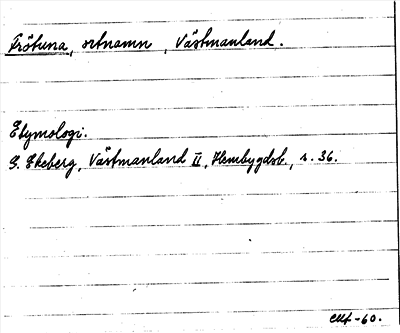 Frötuna, ortnamn, Västmanland.
Etymologi.
G. Ekeberg, Västmanland II, Hembygdsb., s. 36.
-60.